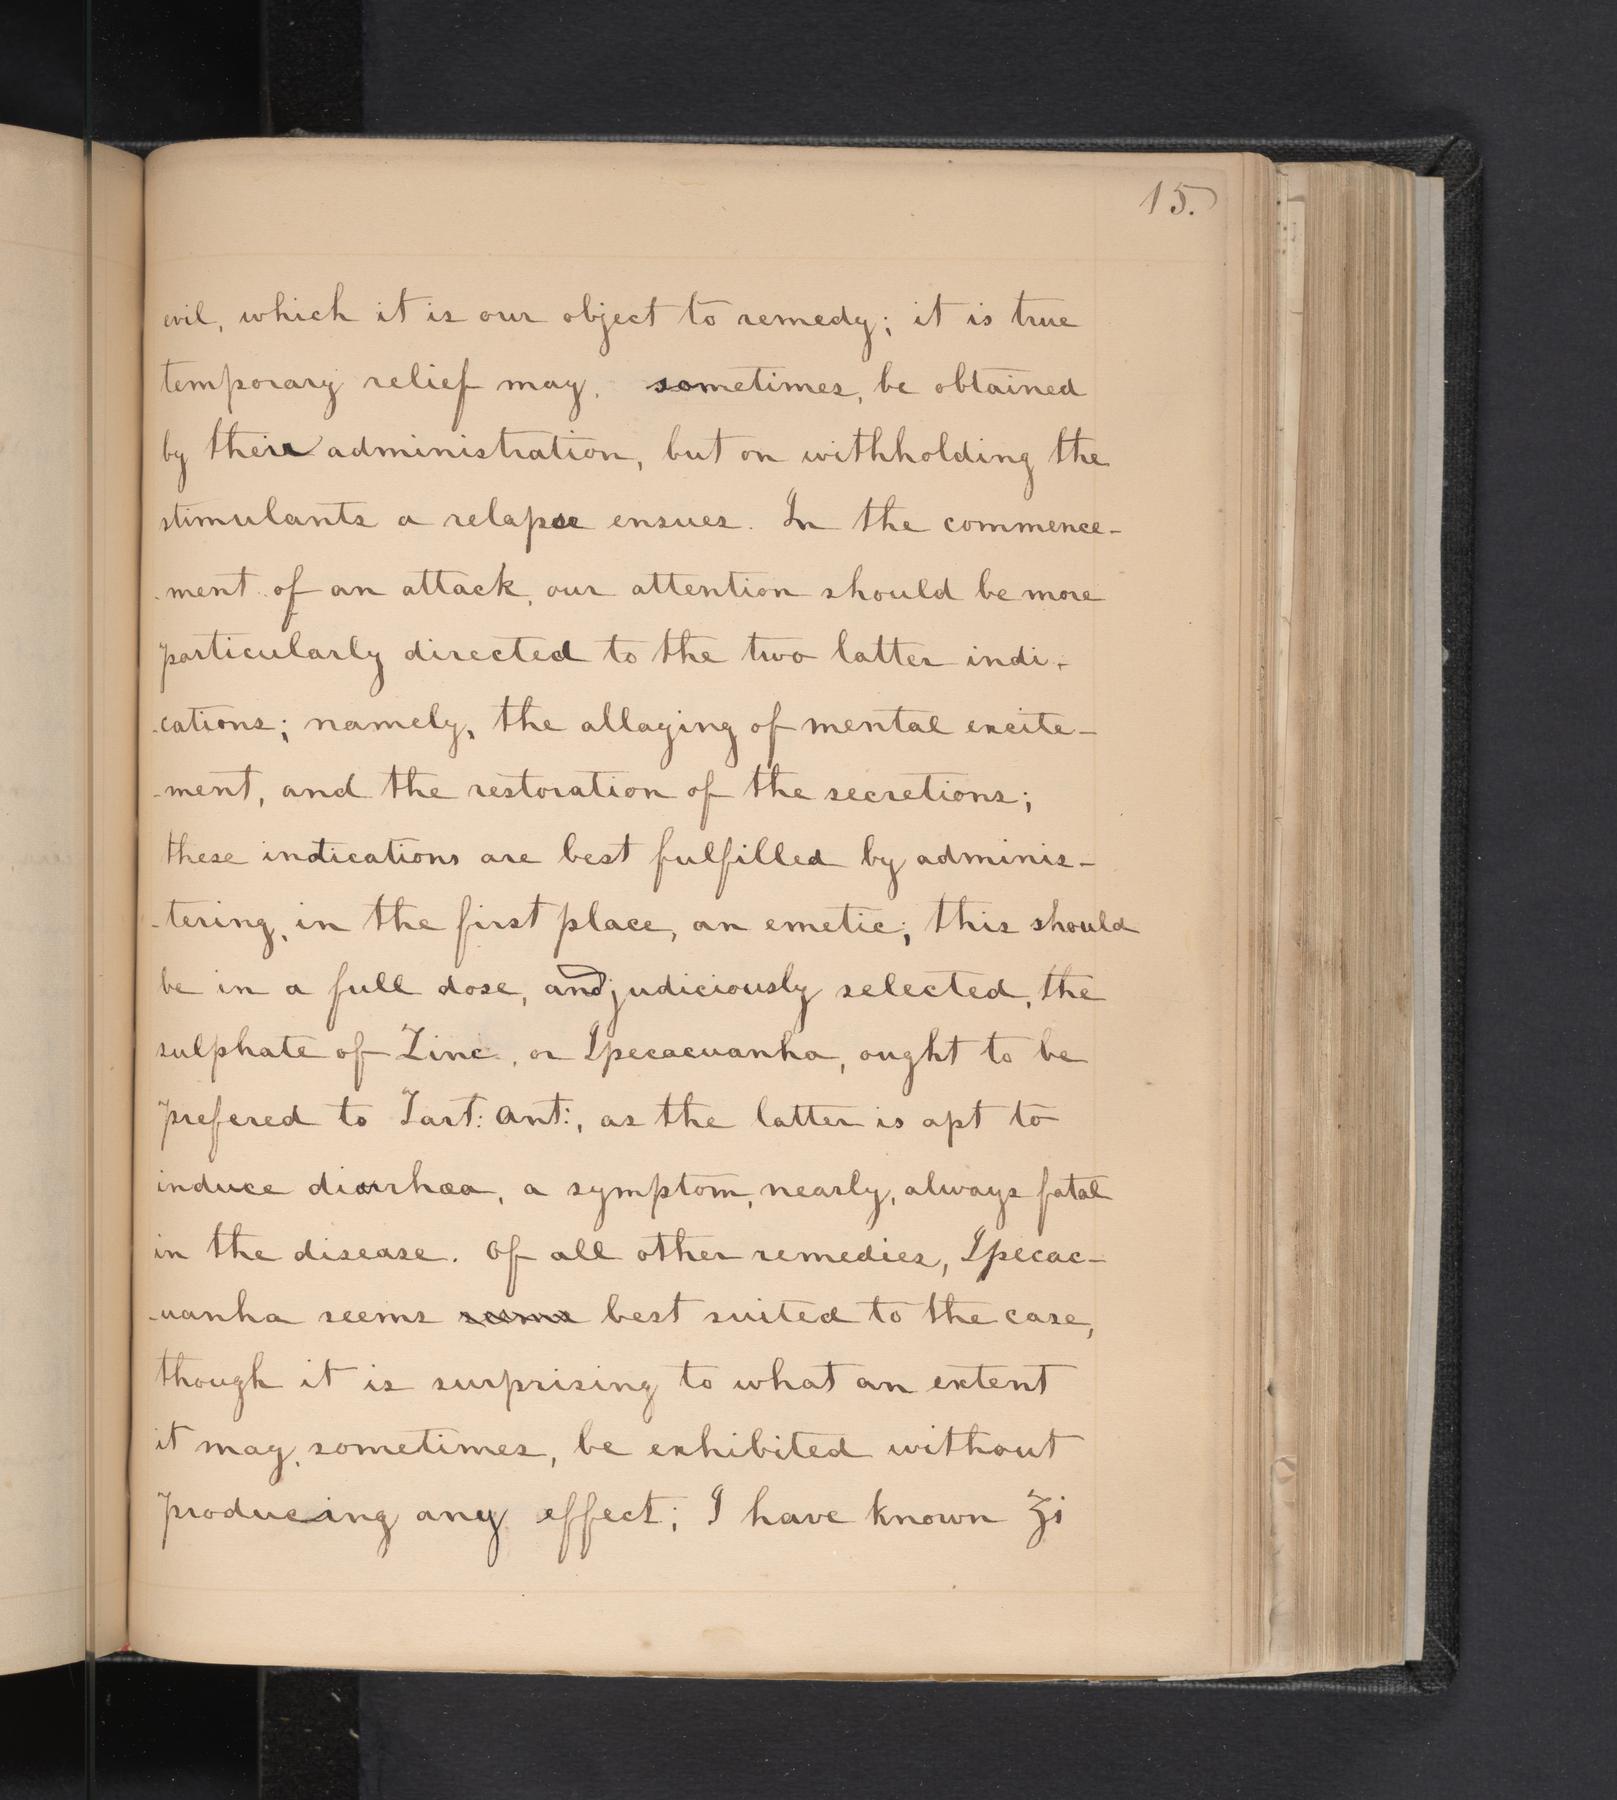 15.
evil, which it is our object to remedy; it is true
temporary relief may, sometimes, be obtained
by their administration, but on withholding the
stimulants a relapse ensues. In the commence-
-ment of an attack, our attention should be more
particularly directed to the two latter indi-
-cations; namely, the allaying of mental excite-
-ment, and the restoration of the secretions;
these indications are best fulfilled by adminis-
-tering, in the first place, an emetic; this should
be in a full dose, and judiciously selected, the
sulphate of Zinc, or Ipecacuanha, ought to be
prefered to Tart: Ant:, as the latter is apt to
induce diarrhœa, a symptom, nearly, always fatal
in the disease. Of all other remedies, Ipecac-
-uanha seems seems best suited to the case,
though it is surprising to what an extent
it may, sometimes, be exhibited without
producing any effect; I have known ʒi